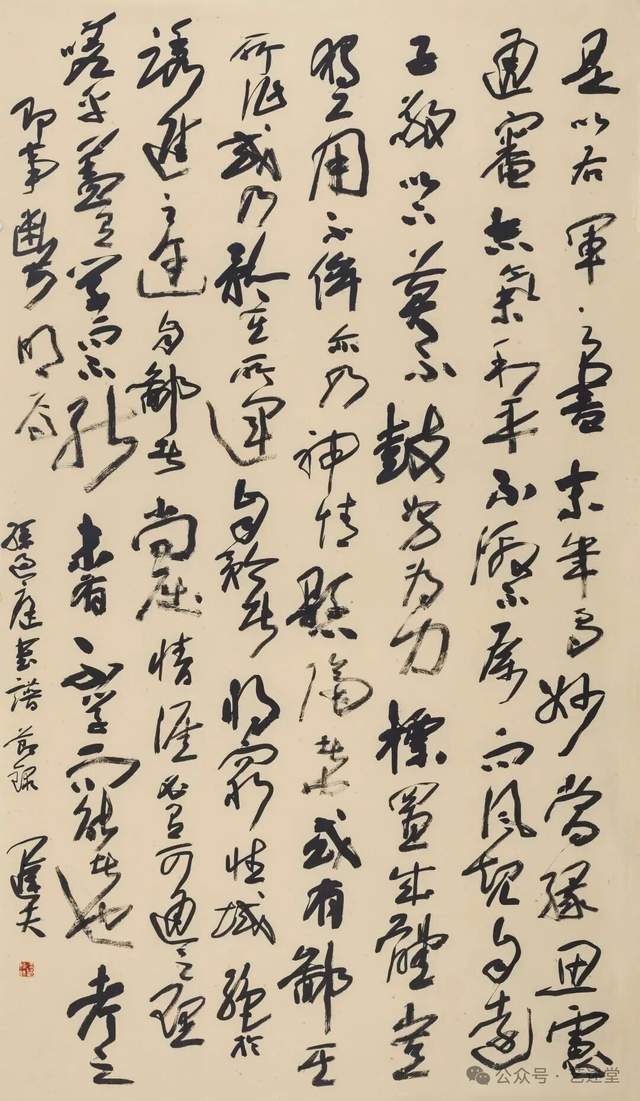 是以右軍之書末年多妙當緣思慮
通審志氣和平不激不厲而風規自遠
子敬以下莫不鼓努為力標置成體豈
獨工用不侔亦乃神情懸隔者也或有鄙其
所作或乃矜其所運自矜者將窮性域絕於
誘進之途自鄙者尚屈情涯必有可通之理
嗟乎蓋有學而不能未有不學而能者也考之
即事斷可明焉
孫過庭書譜節錄
公众号